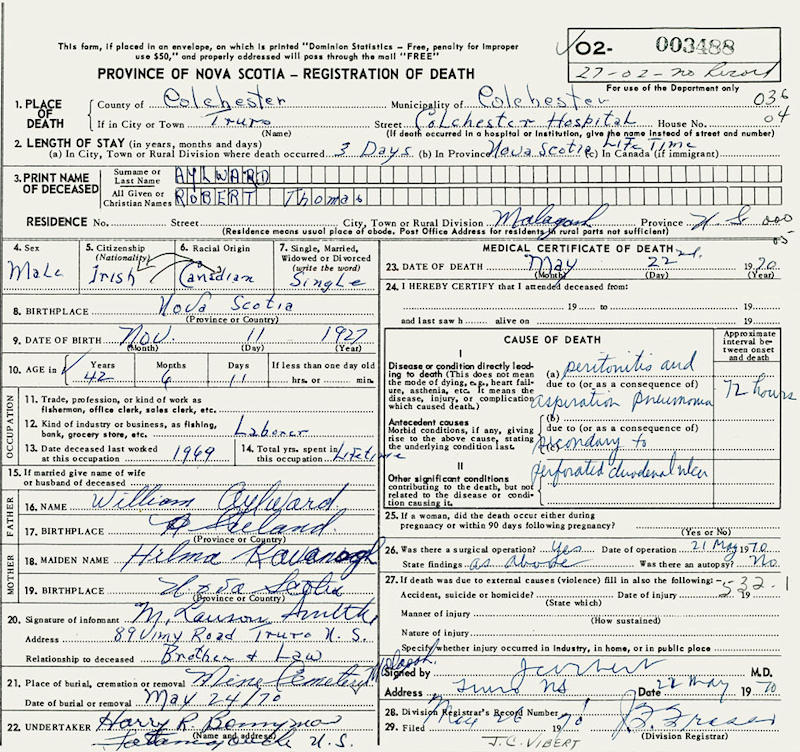 This form, if placed in an envelope, on which is printed "Dominion Statistics – Free, penalty for improper
use $50," and properly addressed will pass through the mail "FREE"
O2- 003488
27-02-no Record
For use of the Department only
PROVINCE OF NOVA SCOTIA – REGISTRATION OF DEATH
036
04
1. PLACE OF DEATH
County of Colchester Municipality of Colchester
If in City or Town Truro Street Colchester Hospital House No.
(Name) (If death occurred in a hospital or institution, give the name instead of street and number)
2. LENGTH OF STAY (in years, months and days)
(a) In City, Town or Rural Division where death occurred 3 Days (b) In Province Nova Scotia Life Time (c) In Canada (if immigrant)
3. PRINT NAME OF DECEASED
Surname or Last Name AYLWARD
All Given or Christian Names ROBERT Thomas
RESIDENCE No. Street City, Town or Rural Division Malagash Province N.S. 000
05
(Residence means usual place of abode. Post Office Address for residents in rural parts not sufficient)
4. Sex
Male
5. Citizenship (Nationality)
Irish
6. Racial Origin
Canadian
7. Single, Married, Widowed or Divorced (write the word)
Single
8. BIRTHPLACE Nova Scotia
(Province or Country)
9. DATE OF BIRTH Nov. 11 1927
(Month) (Day) (Year)
10. AGE in Years Months Days If less than one day old
42 6 11 hrs. or min.
OCCUPATION
11. Trade, profession, or kind of work as
fishermon, office clerk, sales clerk, etc.
12. Kind of industry or business, as fishing,
bank, grocery store, etc. Laborer
13. Date deceased last worked
at this occupation 1969
14. Total yrs. spent in
this occupation Lifetime
15. If married give name of wife
or husband of deceased
FATHER
16. NAME William Aylward
17. BIRTHPLACE Ireland
(Province or Country)
MOTHER
18. MAIDEN NAME Hilma Kavanagh
19. BIRTHPLACE Nova Scotia
(Province or Country)
20. Signature of informant M. Lawson Smith
Address 89 Vimy Road Truro N.S.
Relationship to deceased Brother & Law
21. Place of burial, cremation or removal Mine Cemetery Malagash.
Date of burial or removal May 24/70
22. UNDERTAKER Harry R Bonnyman
(Name and address)
Tatamagouche N.S.
MEDICAL CERTIFICATE OF DEATH
23. DATE OF DEATH May 22nd. 1970
(Month) (Day) (Year)
24. I HEREBY CERTIFY that I attended deceased from:
19 to 19
and last saw h alive on 19
CAUSE OF DEATH
Approximate interval between onset and death
I
Disease or condition directly leading to death (This does not mean the mode of dying, e.g., heart failure, asthenia, etc. It means the disease, injury, or complication which caused death.)
(a) peritonitis and
due to (or as a consequence of)
aspiration pneumonia 72 hours
Antecedent causes
Morbid conditions, if any, giving rise to the above cause, stating the underlying condition last.
(b)
due to (or as a consequence of)
(c) secondary to
II
Other significant conditions contributing to the death, but not related to the disease or condition causing it.
perforated duodenal ulcer
25. If a woman, did the death occur either during
pregnancy or within 90 days following pregnancy?
(Yes or No)
26. Was there a surgical operation? Yes Date of operation 21 May 1970
State findings as above Was there an autopsy? No
27. If death was due to external causes (violence) fill in also the following:- 532.1
Accident, suicide or homicide? Date of injury 19
(State which)
Manner of injury
(How sustained)
Nature of injury
Specify whether injury occurred in Industry, in home, or in public place
Signed by JCVibert M.D.
Address Truro NS Date 22 May 1970
28. Division Registrar's Record Number
29. Filed May 19 70
(Division Registrar)
J.C. VIBERT